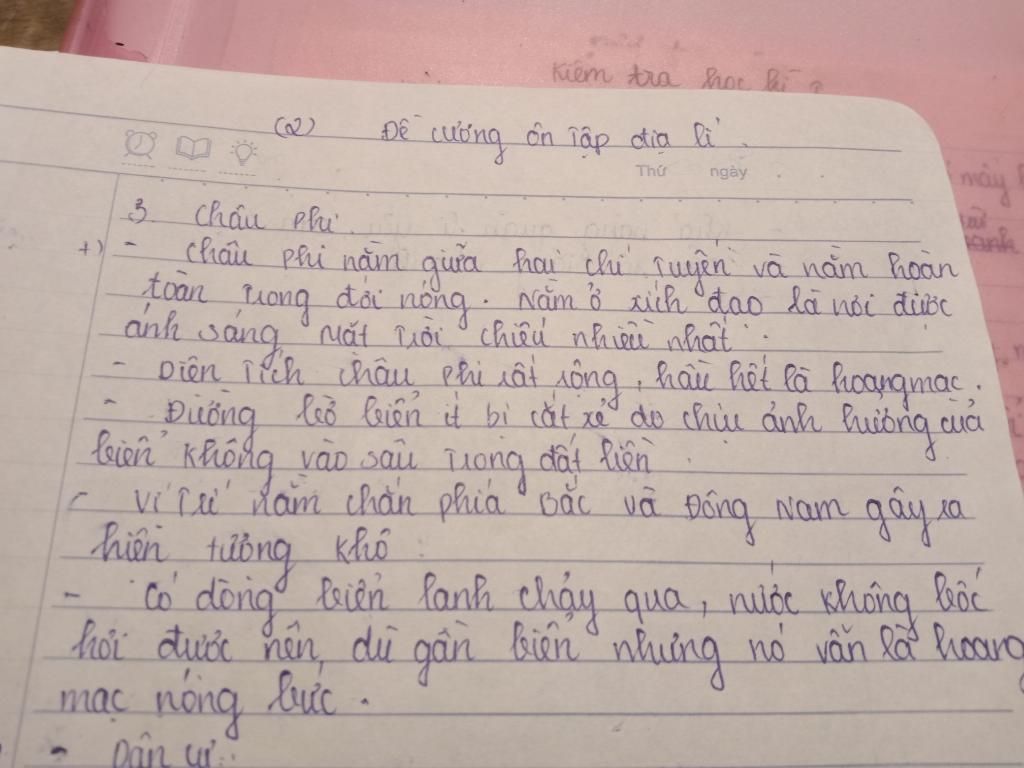 Kiểm tra học kì 2
(2) Đề cương ôn tập địa lí.
Thứ ngày
3 Châu phi.
+) - Châu phi nằm giữa hai chí tuyến và nằm hoàn
toàn trong đới nóng. Nằm ở xích đạo là nơi được
ánh sáng mặt trời chiếu nhiều nhất.
- Diện tích châu phi rất rộng, hầu hết là hoang mạc.
- Đường bờ biển ít bị cắt xẻ do chịu ảnh hưởng của
biển không vào sâu trong đất liền.
- Vị trí nằm chắn phía Bắc và Đông Nam gây ra
hiện tượng khô.
- Có dòng biển lạnh chảy qua, nước không bốc
hơi được nên, dù gần biển nhưng nó vẫn là hoang
mạc nóng bức.
- Dân cư.